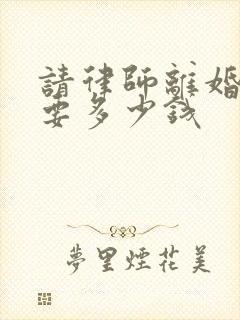 請律師離婚
要多少錢
夢里煙花美